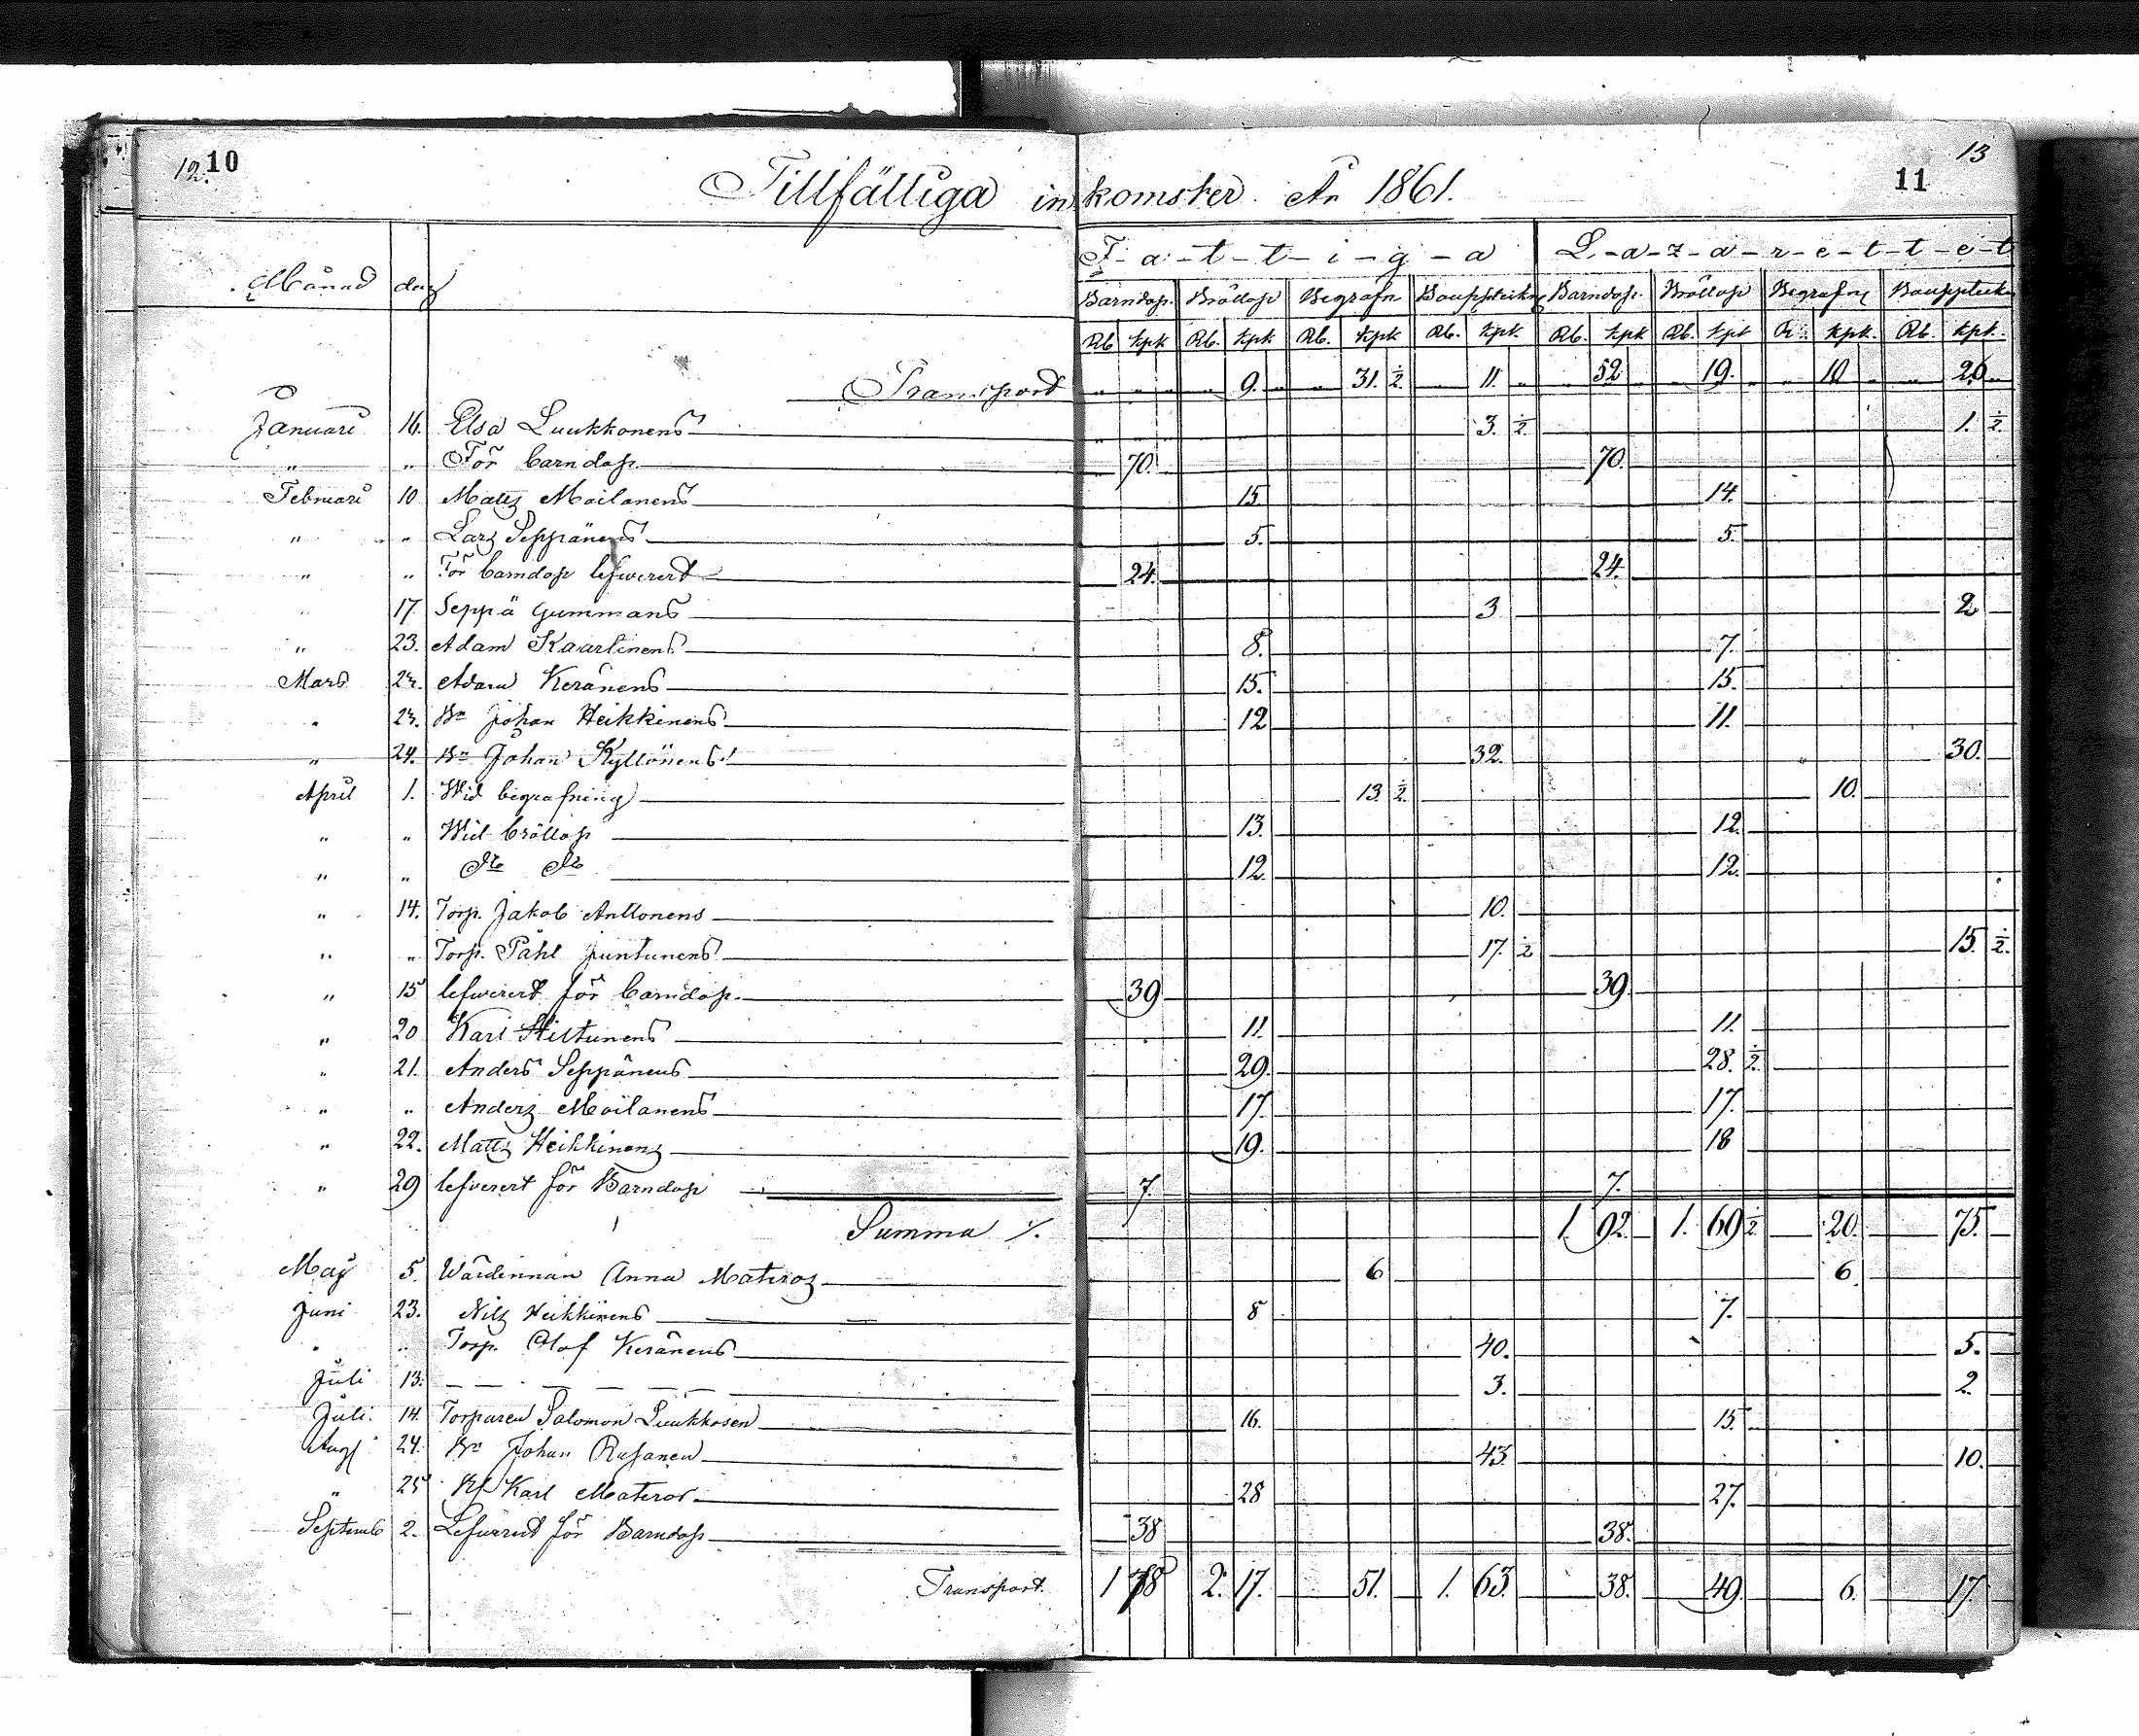 12. 10
Tillfälliga inkomster År 1861.
11 13
F-a-t-t-i-g-a L-a-z-a-r-e-t-t-e-t
Månad dag Barndop. Bröllop Begrafn Bouppteckn Barndop. Bröllop Begrafn Bouppteckn
Rb kpk Rb. kpk Rb. kpk Rb. kpk. Rb. kpk Rb. kpk R. kpk. Rb. kpk.
Transport 9. 31. ½ 11. 52 19. 10 26
Januari 16. Elsa Luukkonens 3. ½ 1. ½
" " För barndop. 70. 70.
Februari 10 Matts Moilanens 15 14.
" " Lars Seppänens 5. 5.
" " För barndop lefwerert 24. 24.
" 17 Seppä Gummans 3 2
" 23. Adam Kaartinens 8. 7.
Mars 24. Adam Keränens 15. 15.
" 24. Bn Johan Heikkinens 12 11.
" 24. Bn Johan Kyllönens 32. 30.
April 1. Wid begrafning 13 ½ 10.
" " Wid bröllop 13. 12.
" " Do Do 12. 12.
" 14. Torp. Jakob Anttonens 10.
" " Torp. Påhl Juntunens 17. ½ 15 ½
" 15 lefwerert för barndop. 39 39.
" 20 Karl Hiltunens 11. 11.
" 21. Anders Seppänens 29. 28. ½
" " Anders Moilanens 17. 17.
" 22. Matts Heikkinens 19. 18
" 29 lefwerert för Barndop 7. 7.
Summa /. 1. 92. 1. 69 ½ 20. 75.
Maj 5. Wärdinnan Anna Materos 6 6.
Juni 23. Nils Heikkinens 8 7.
" " Torp. Olof Keränens 40. 5.
Juli 13. — — — — — — 3. 2.
Juli. 14. Torparen Salomon Luukkosen 16. 15.
Aug. 24. Bn Johan Rusanen 43. 10.
" 25 Karl Materos 28 27.
Septemb 2. Lefwerert för Barndop 38 38.
Transport. 1 78 2. 17. 51. 1. 63. 38. 49. 6. 17.